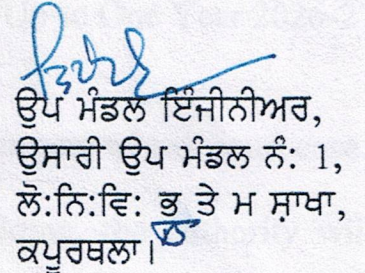 ਉਪ ਮੰਡਲ ਇੰਜੀਨੀਅਰ,
ਉਸਾਰੀ ਉਪ ਮੰਡਲ ਨੰ: 1,
ਲੋ:ਨਿ:ਵਿ: ਭ ਤੇ ਮ ਸ਼ਾਖਾ,
ਕਪੂਰਥਲਾ।